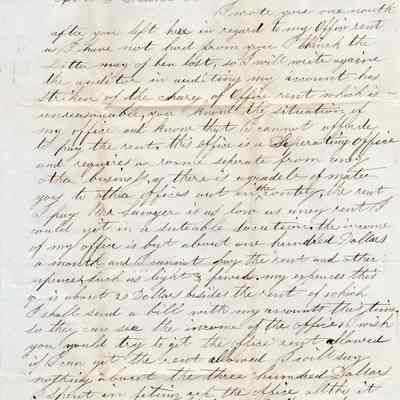 I wrote you one month
after you left here in regard to my Office rent
as I have not had from you I think the
letter may of ben lost, so I will write again
the auditor in auditing my account has
striken of the charg of Office rent which is
unreasonable, you know the situation of
my office and know that I cannot afford
to pay the rent. this office is a Seperating Office
and requires a room seperate from any
other business, as there is a quadele of matter
goy to other offices out in the county, the rent
I pay Mr Sawyer is as low as any rent I
could get in a suitable location. the income
of my office is but about one hundred Dollars
a month and I cannot pay the rent and other
expences such as light & fewel. my expences this
q is about 25 Dollars besides the rent of which
I shall send a bill with my accounts this time
so they can see the income of the office, I wish
you would try to get the office rent allowed
if I can get the rent allowed I will say
nothing about the three hundred Dollars
I spent in fiting up the office altho it